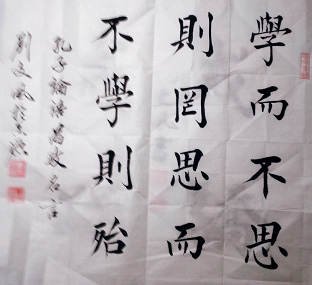 學而不思
則罔思而
不學則殆
孔子論語為政名言
劉文